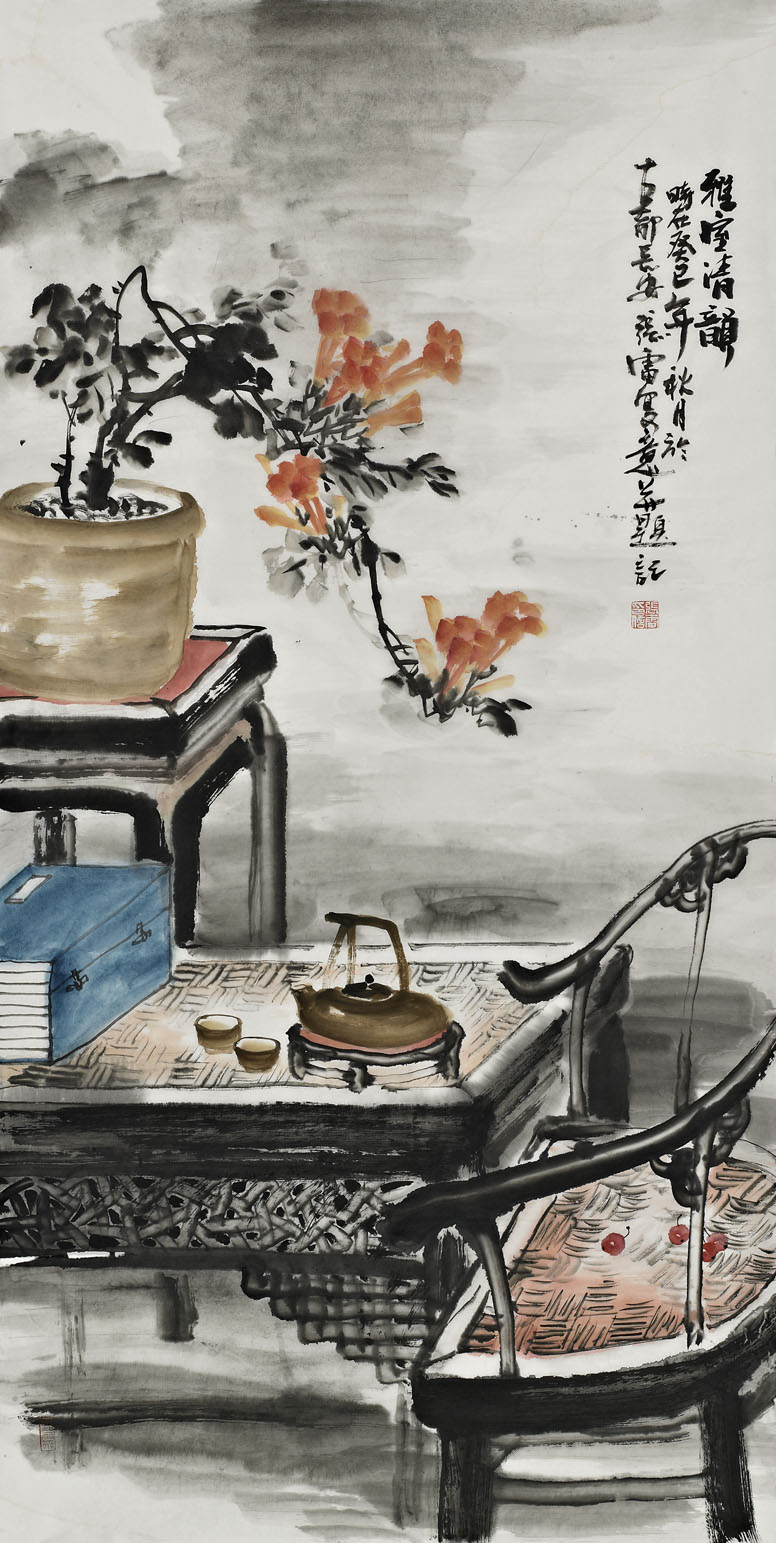 雅室清韻
時在癸巳年秋月於
古都長安張雷寫意並題記